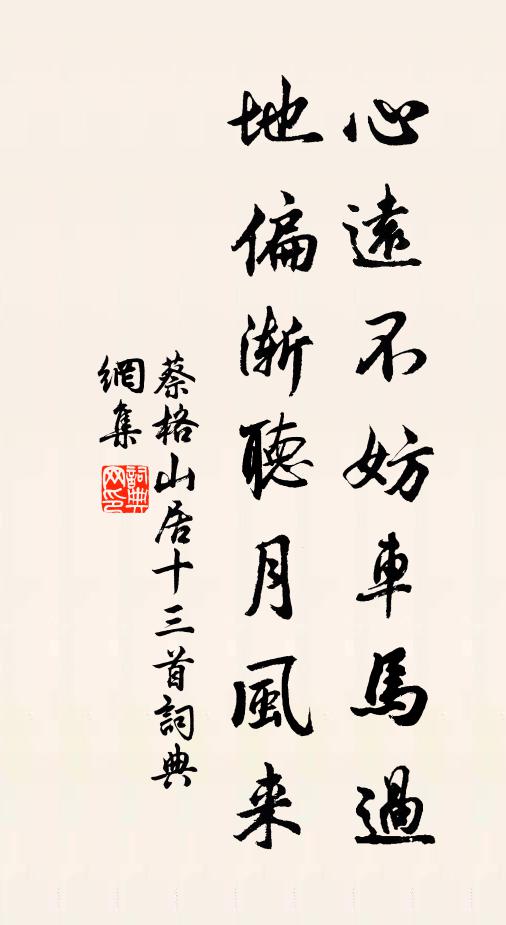 心遠不妨車馬過
地偏漸聽月風来
蔡格山居十三首詞典
網集
詞典網印